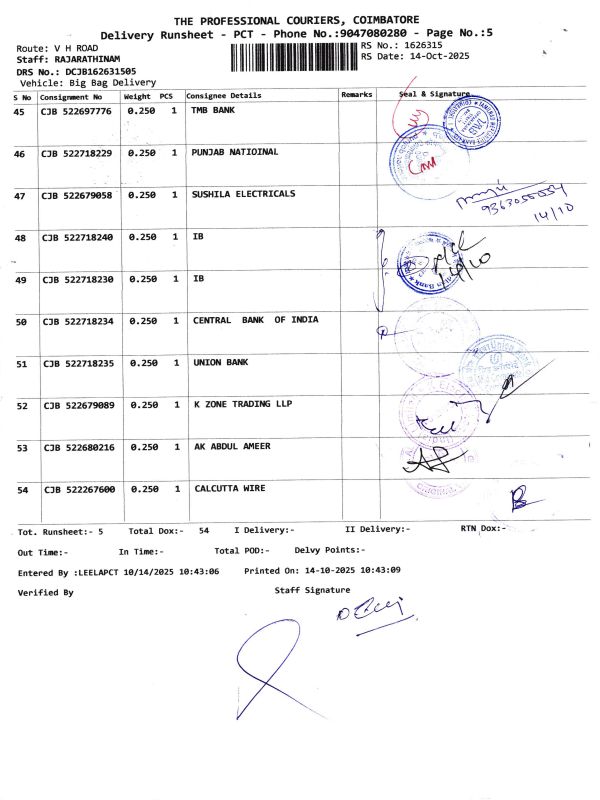 THE PROFESSIONAL COURIERS, COIMBATORE
Delivery Runsheet - PCT - Phone No.:9047080280 - Page No.:5
Route: V H ROAD
RS No.: 1626315
Staff: RAJARATHINAM
RS Date: 14-Oct-2025
DRS No.: DCJB162631505
Vehicle: Big Bag Delivery
S No Consignment No Weight PCS Consignee Details Remarks Seal & Signature
45 CJB 522697776 0.250 1 TMB BANK
46 CJB 522718229 0.250 1 PUNJAB NATIOINAL
47 CJB 522679058 0.250 1 SUSHILA ELECTRICALS
9363055054
14/10
48 CJB 522718240 0.250 1 IB
49 CJB 522718230 0.250 1 IB
50 CJB 522718234 0.250 1 CENTRAL BANK OF INDIA
51 CJB 522718235 0.250 1 UNION BANK
52 CJB 522679089 0.250 1 K ZONE TRADING LLP
53 CJB 522680216 0.250 1 AK ABDUL AMEER
54 CJB 522267600 0.250 1 CALCUTTA WIRE
Tot. Runsheet:- 5 Total Dox:- 54 I Delivery:- II Delivery:- RTN Dox:-
Out Time:- In Time:- Total POD:- Delvy Points:-
Entered By :LEELAPCT 10/14/2025 10:43:06 Printed On: 14-10-2025 10:43:09
Verified By Staff Signature